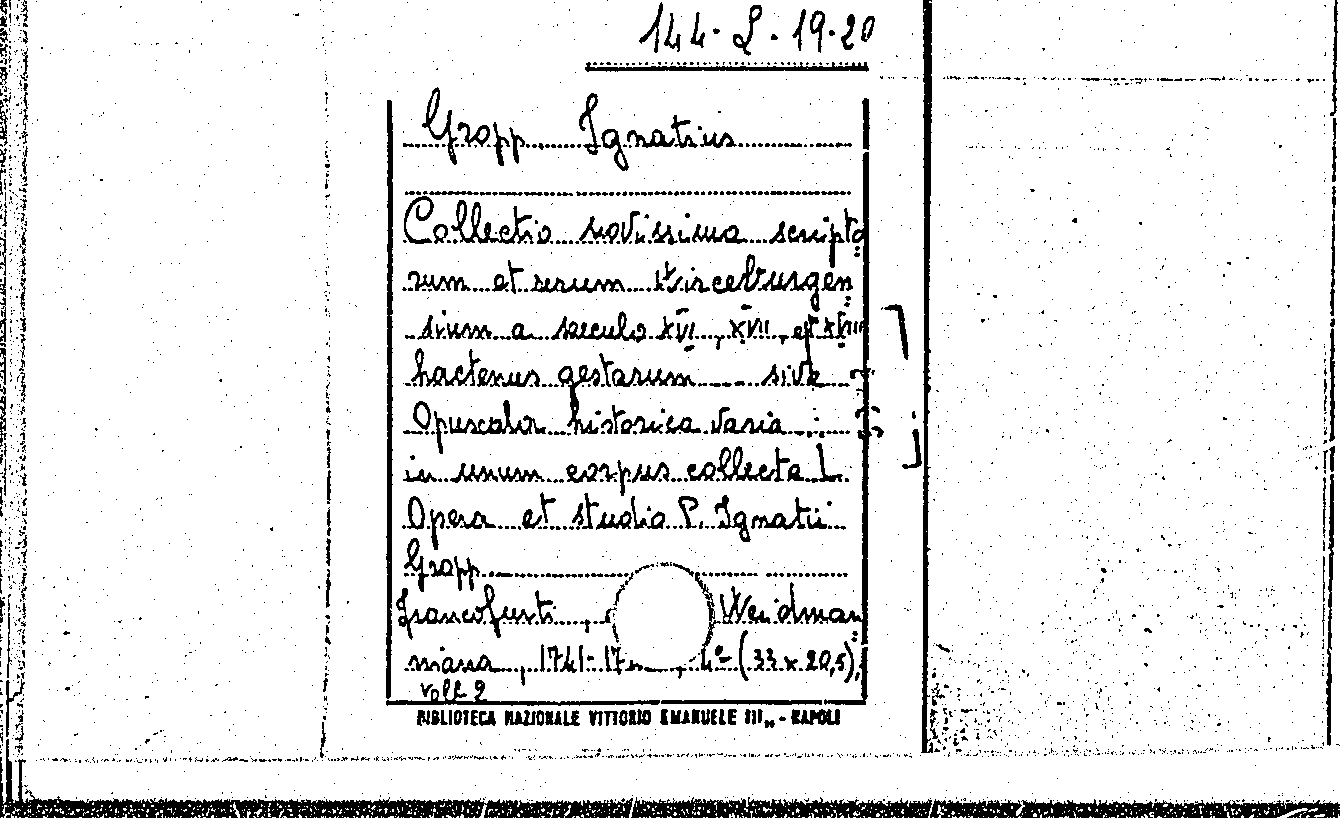 144. L. 19-20
Gropp Ignatius
Collectio novissima scripto
rum et rerum Wirceburgen
sium a saeculo XVI, XVII, et XVIII
hactenus gestarum ... sive
Opuscola historica varia ...
in unum corpus collecta
Opera et studio P. Ignatii
Gropp.
Francofurti, Weidman
niana, 1741-17 , 4º (33 x 20,5),
voll 2
BIBLIOTECA NAZIONALE VITTORIO EMANUELE III„ - NAPOLI